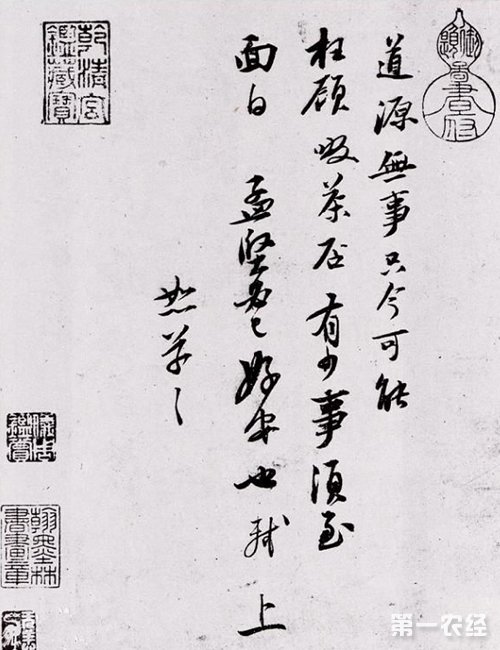 道源無事只今可能
枉顧啜茶否有少事須至
面白孟堅必已好安也軾上
恕草々
乾清宮
鑑藏寶
翰墨林
書畫章
第一农经